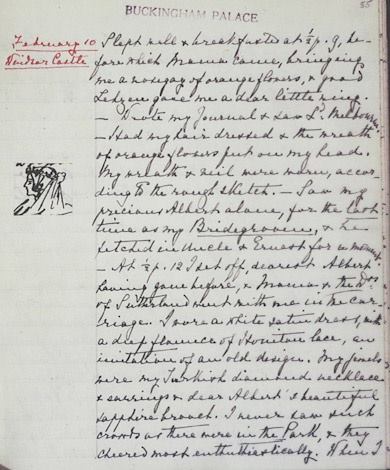 55
BUCKINGHAM PALACE
February 10
Windsor Castle
Slept well & breakfasted at ½ p. 9, be-
fore which Mama came, bringing
me a nosegay of orange flowers, & good
Lehzen gave me a dear little ring.
– Wrote my Journal & saw Ld Melbourne.
– Had my hair dressed & the wreath
of orange flowers put on my head.
My wreath & veil were worn, accor-
ding to the rough sketch. – Saw my
precious Albert alone, for the last
time as my Bridegroom, & he
fetched in Uncle & Ernest for a moment.
– At ½ p. 12 I set off, dearest Albert
having gone before, & Mama & the Dss
of Sutherland went with me in the car-
riage. I wore a white satin dress, with
a deep flounce of Honiton lace, an
imitation of an old design. My jewels
were my Turkish diamond necklace
& earrings & dear Albert's beautiful
sapphire brooch. I never saw such
crowds as there were in the Park, & they
cheered most enthusiastically. When I